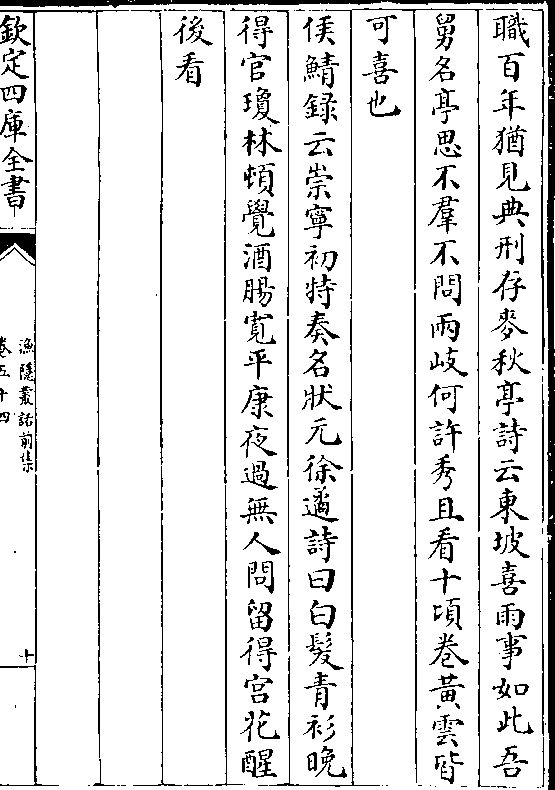 職百年猶見典刑存麥秋亭詩云東坡喜雨事如此吾
舅名亭思不羣不問兩岐何許秀且看十頃卷黃雲皆
可喜也
侯鯖録云崇寧初特奏名狀元徐遹詩曰白髮青衫晚
得官瓊林頓覺酒腸寛平康夜過無人問留得宫花醒
後看
欽定四庫全書
漁隱叢話前集
卷五十四
十